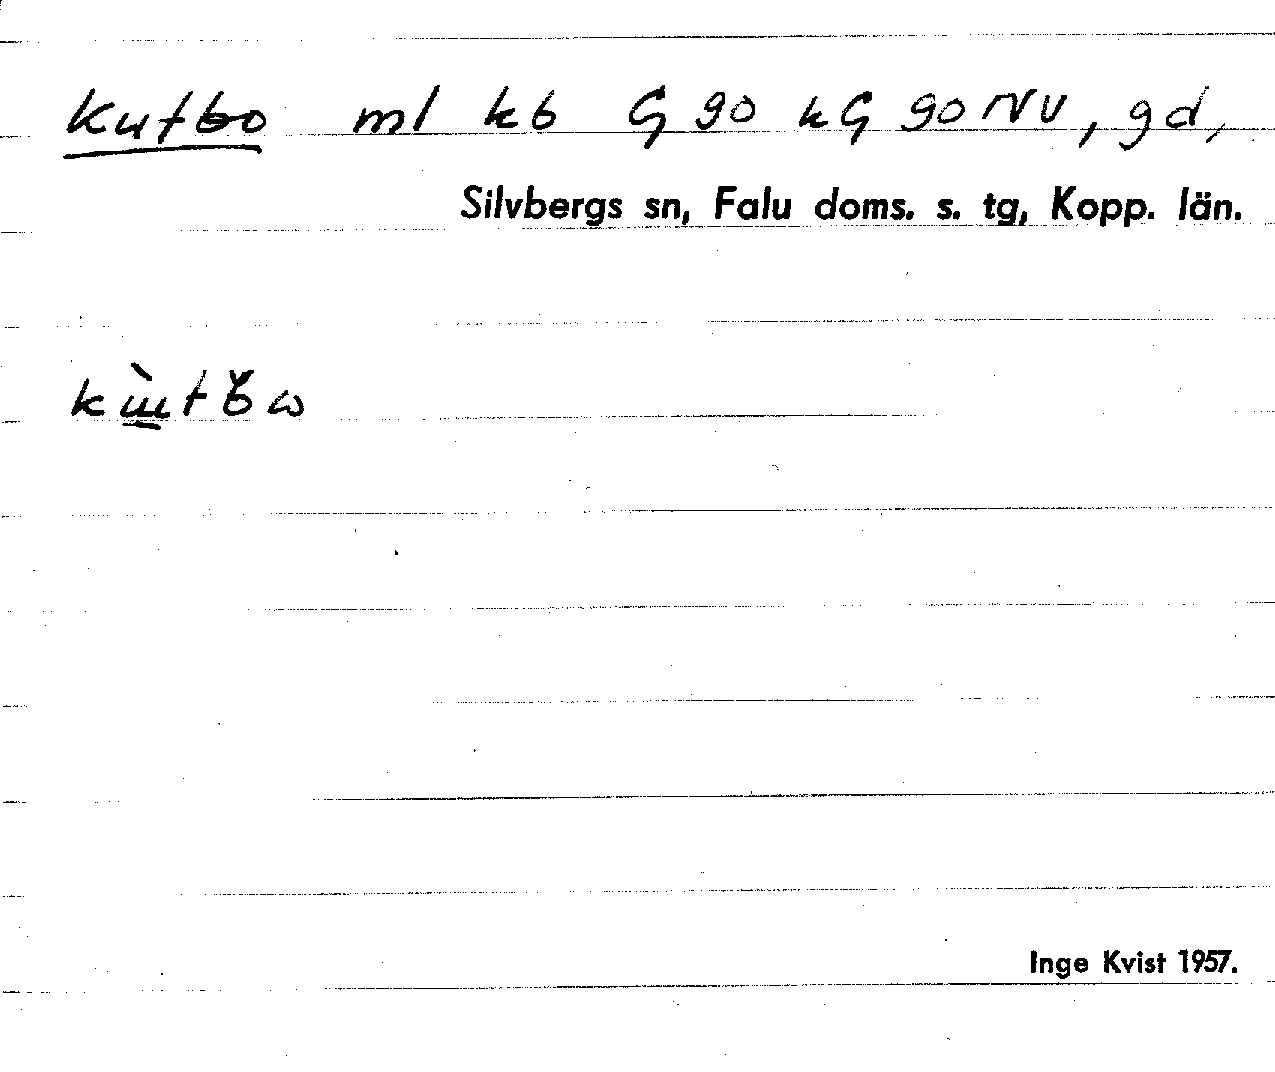 Kutbo ml kb G go kG go NV, gd,
Silvbergs sn, Falu doms. s. tg, Kopp. län.
Inge Kvist 1957.